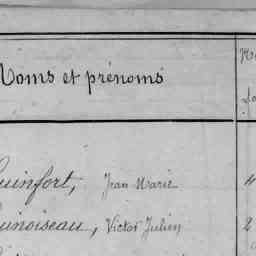 Noms et prénoms
uinfort, Jean Marie
uinoiseau, Victor Julien